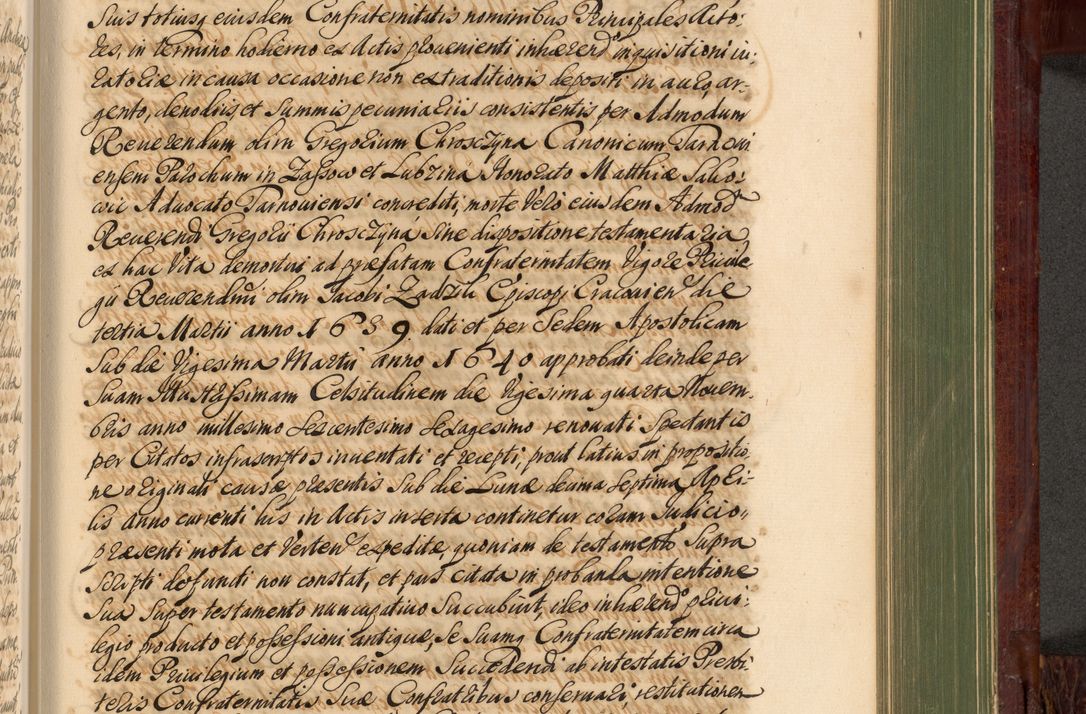 Suis totiusq eiusdem Confraternitatis nominibus Principales Acto:
res, in termino hodierno ex Actis provenienti inhærend inquisitioni iu:
ratoriæ in causa occasione non extraditionis depositi in auro, ar-
gento, clenodiis, et summis pecuniariis consistentis, per Admodum
Reverendum olim Gregorium Chrosczyna Canonicum Tarnovi
ensem Parochum in Zassow et Lubzina Honorato Matthiæ
Advocato Tarnoviensi concrediti, morte vero eiusdem Admod
Reverendi Gregorii Chrosczyna sine dispositione testamentaria
ex hac vita demortui ad præfatam Confraternitatem vigore Privile
gii Reverendmi olim Jacobi Zadzik Episcopi Cracovien die
tertia Martii anno 1639 dati et per Sedem Apostolicam
sub die vigesima Martii anno 1640 approbati deinde per
Suam Illustrissimam Celsitudinem die vigesima quarta Novem-
bris anno millesimo sexcentesimo sexagesimo renovati spectantis
per Citatos infrascriptos inventati et recepti, prout latius in propositio,
ne originali causæ præsentis sub die Lunæ decima septima Apri-
lis anno currenti his in Actis inserta continetur coram Judicio,,
præsenti mota et verten expedita, quoniam de testamento supra
scripti defuncti non constat, et pars citata in probanda intentione
sua super testamento nuncupativo succubuit, ideo inhærend privi:
legio producto et possessioni antiquæ, se suamq Confraternitatem circa
idem Privilegium et possessionem succedendi ab intestatis Presbi
teris Confraternitatis suæ Confratribus conservari, restitutionem